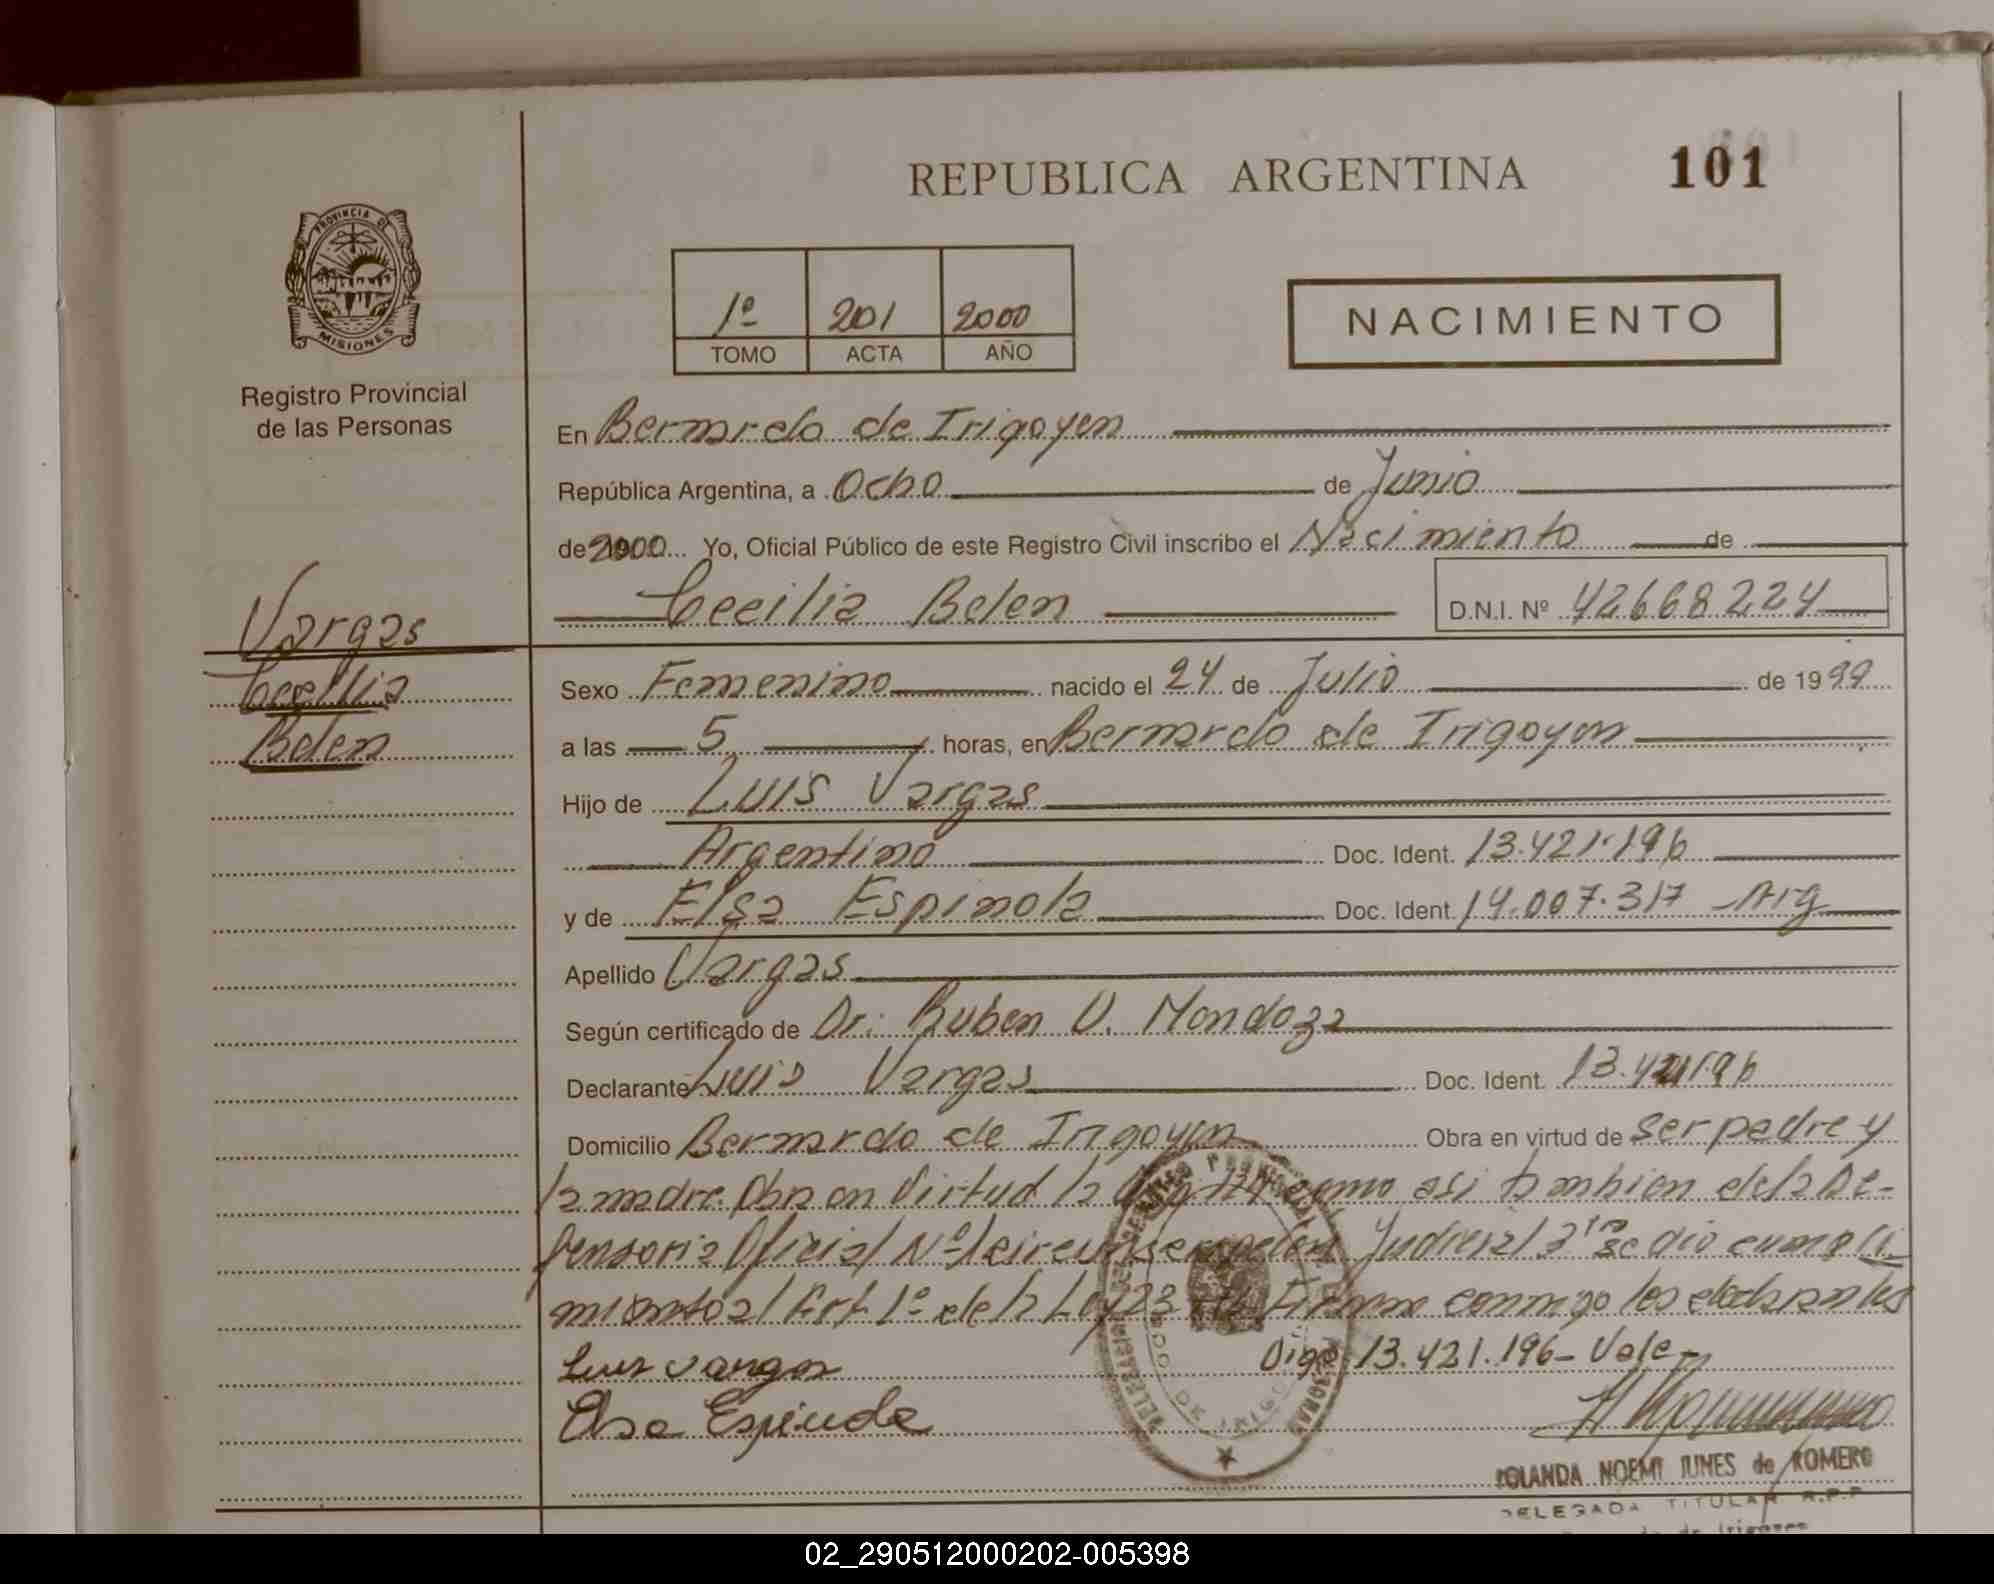 REPUBLICA ARGENTINA
101
PROVINCIA DE
MISIONES
Registro Provincial
de las Personas
1º 201 2000
TOMO ACTA AÑO
NACIMIENTO
En Bernardo de Irigoyen
República Argentina, a Ocho de Junio
de 2000 Yo, Oficial Público de este Registro Civil inscribo el Nacimiento de
Cecilia Belen D.N.I. Nº 42668224
Vargas
Cecilia
Belen
Sexo Femenino nacido el 24 de Julio de 1999
a las 5 horas, en Bernardo de Irigoyen
Hijo de Luis Vargas
Argentino Doc. Ident. 13.421.196
y de Elsa Espinola Doc. Ident. 14.007.317 Arg
Apellido Vargas
Según certificado de Dr. Ruben V. Mendoza
Declarante Luis Vargas Doc. Ident. 13.421.196
Domicilio Bernardo de Irigoyen Obra en virtud de ser padre y
la madre. Obra en Virtud la como asi tambien de la De-
fensoria Oficial Nº 1 circunscripcion Judicial 3ra se dio cumpli
miento al Art. 1º de la Ley 23 Firman conmigo los declarantes
Luis Vargas Digo 13.421.196- Vale-
Elsa Espinola
YOLANDA NOEMI IUNES de ROMERO
DELEGADA TITULAR R.P.P
de Irigoyen
02_290512000202-005398